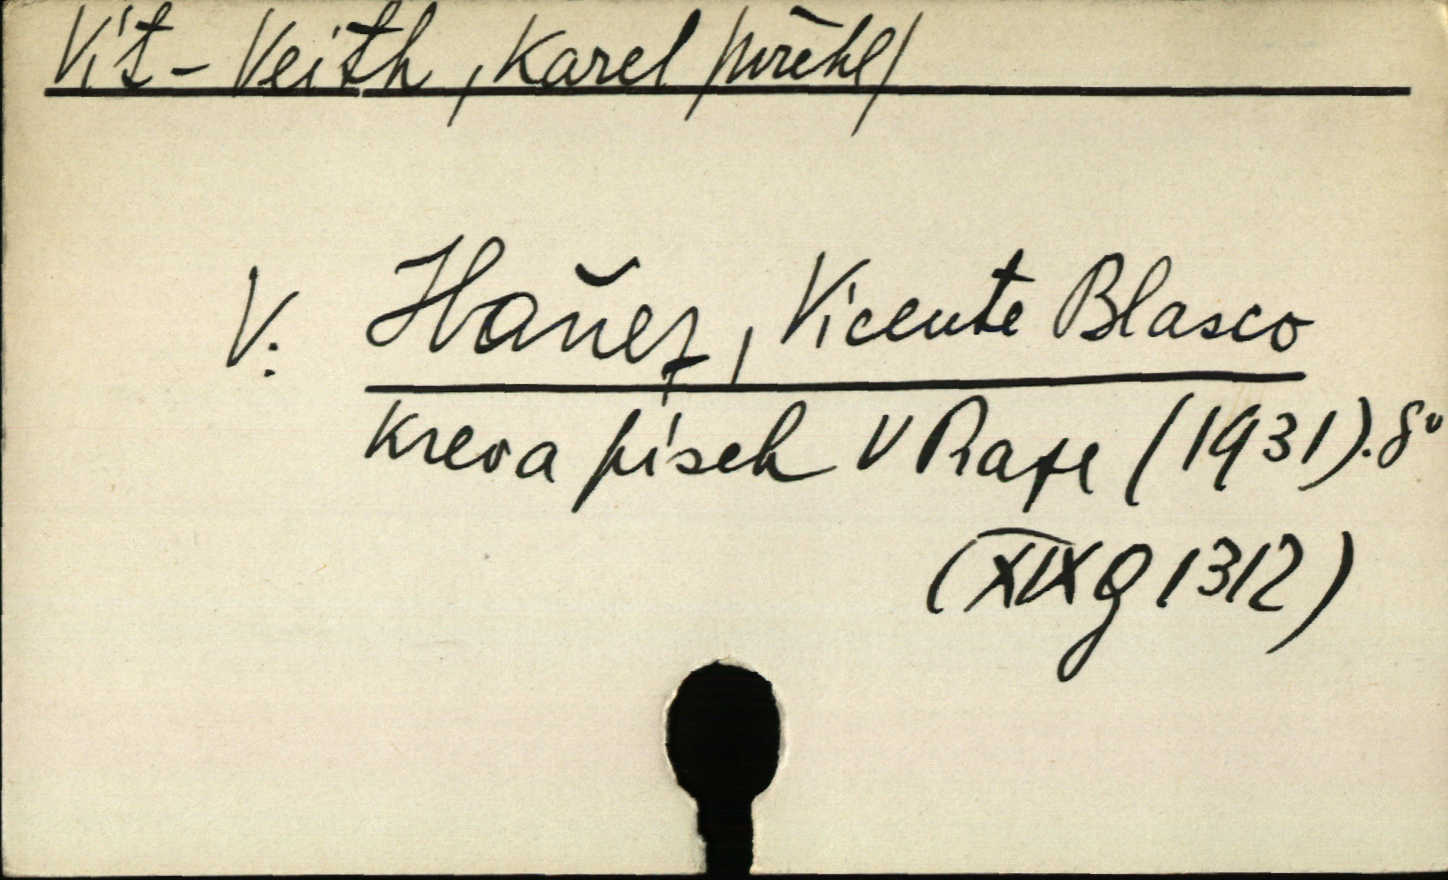 Vít-Veith, Karel /překl/
V. Ibañez, Vicente Blasco
Krev a písek V Praze (1931). 8°
(XIX G 1312)